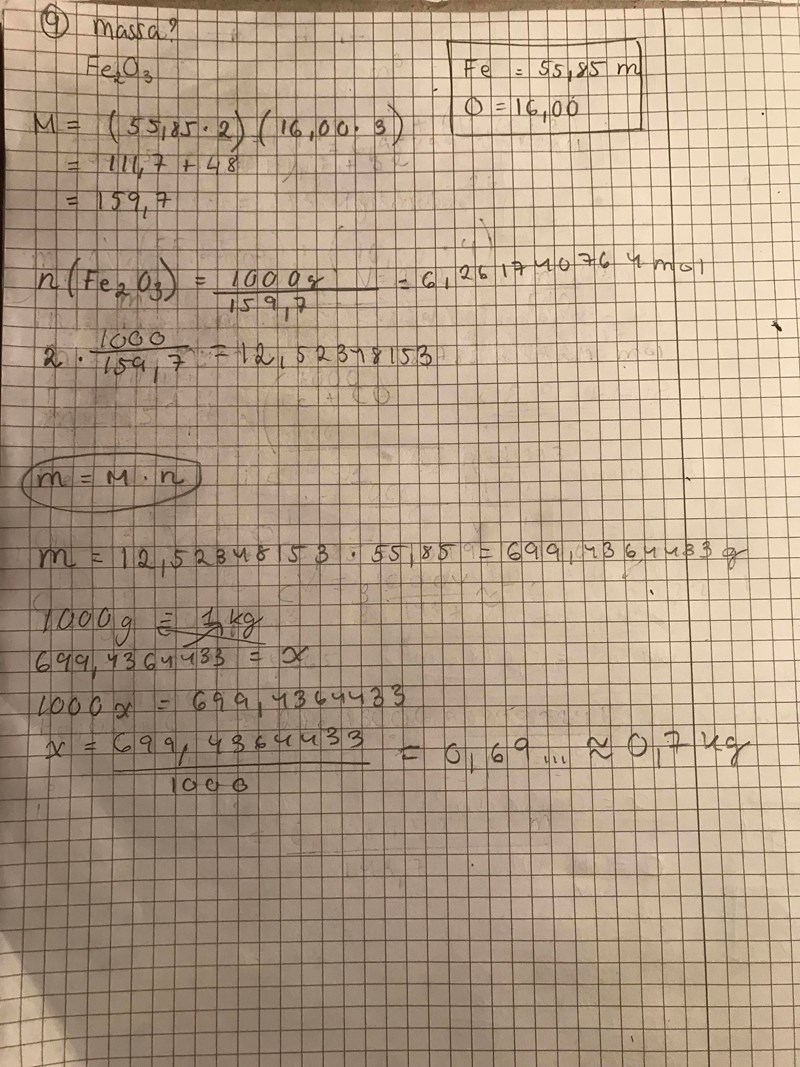 9 massa?
Fe₂O₃
Fe = 55,85 m
O = 16,00
M = (55,85 · 2) (16,00 · 3)
= 111,7 + 48
= 159,7
n(Fe₂O₃) = 1000g / 159,7 = 6,261740764 mol
2 · 1000 / 159,7 = 12,52348153
m = M · n
m = 12,52348153 · 55,85 = 699,4364433 g
1000g = 1 kg
699,4364433 = x
1000x = 699,4364433
x = 699,4364433 / 1000 = 0,69... ≈ 0,7 kg